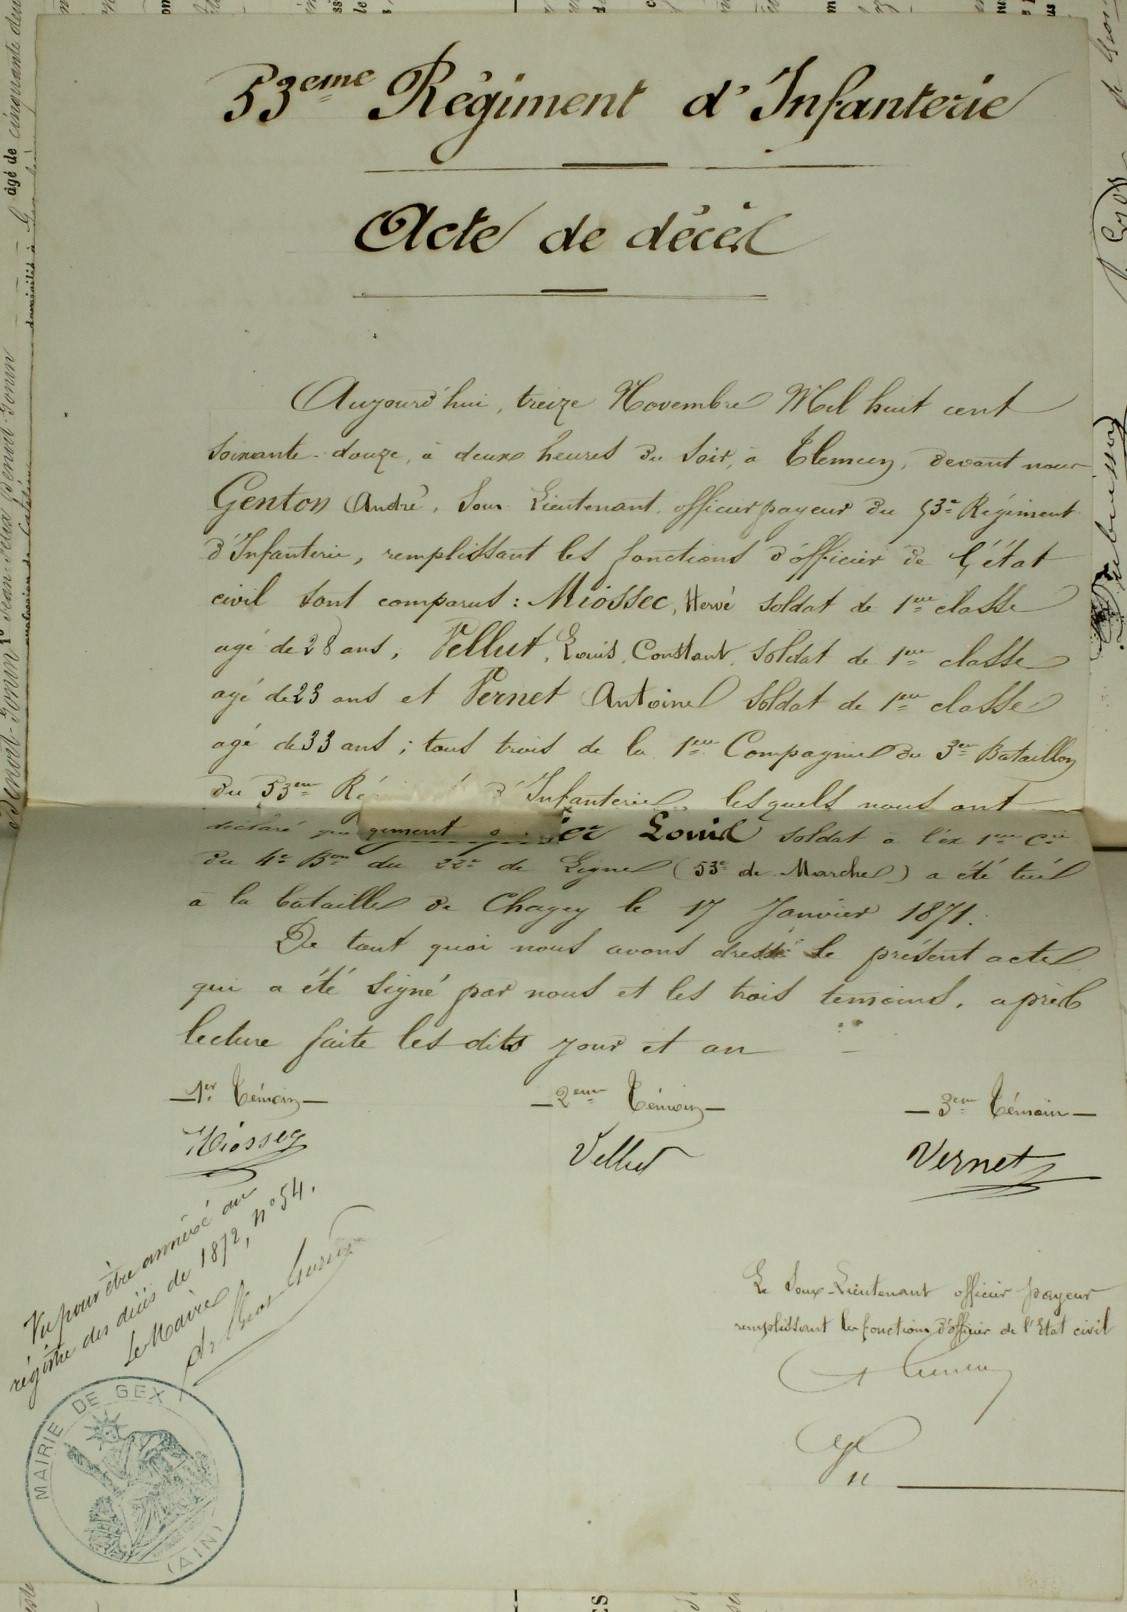 53eme Régiment d'Infanterie
Acte de décès
Aujourd'hui, treize Novembre Mil huit cent
soixante-douze, à deux heures du soir, à Tlemcen, devant nous
Genton André, Sous Lieutenant officier payeur du 53e Régiment
d'Infanterie, remplissant les fonctions d'officier de l'état
civil sont comparus : Miossec, Hervé soldat de 1ere classe
agé de 28 ans, Vellut, Louis, Constant, soldat de 1ere classe
agé de 23 ans et Vernet Antoine soldat de 1ere classe
agé de 33 ans ; tous trois de la 1ere Compagnie du 3e Bataillon
du 53eme Ré d'Infanterie, lesquels nous ont
déclaré que giment Louis soldat à l'ex 1ere Cie
du 4e Bon du 22e de Ligne (53e de Marche) a été tué
à la bataille de Chagey le 17 Janvier 1871.
De tout quoi nous avons dressé le présent acte
qui a été signé par nous et les trois temoins, après
lecture faite les dits jour et an
1er Témoin
2eme Témoin
3eme Témoin
Miossec
Vellut
Vernet
Vu pour être annexé au
régistre des décès de 1872, n° 54.
Le Maire
Le Sous-Lieutenant officier payeur
remplissant les fonctions d'officier de l'Etat civil
MAIRIE DE GEX
(AIN)
agé de cinquante deux
domicilié à